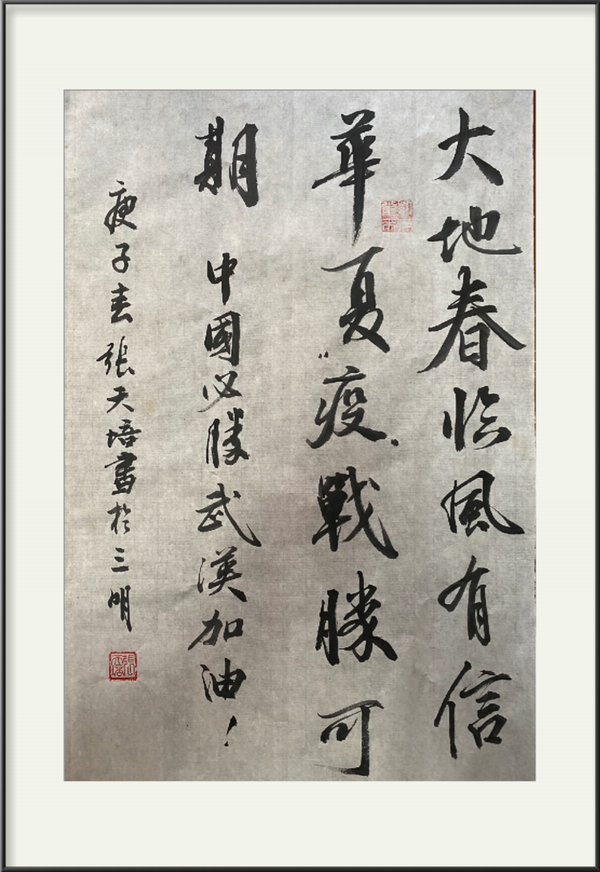 大地春临風有信
華夏“疫”戰勝可
期 中國必勝武漢加油！
庚子春張天培書於三明